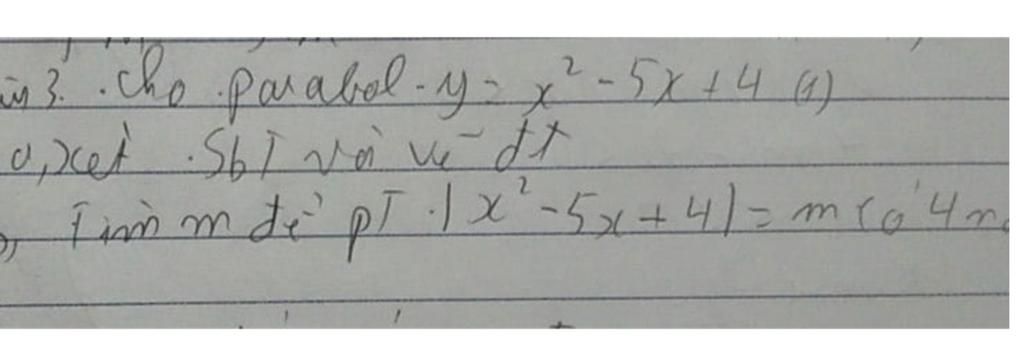 3. Cho parabol y = x² - 5x + 4 (1)
a, xét SbT và vẽ đt
Tìm m để pT |x² - 5x + 4| = m có 4